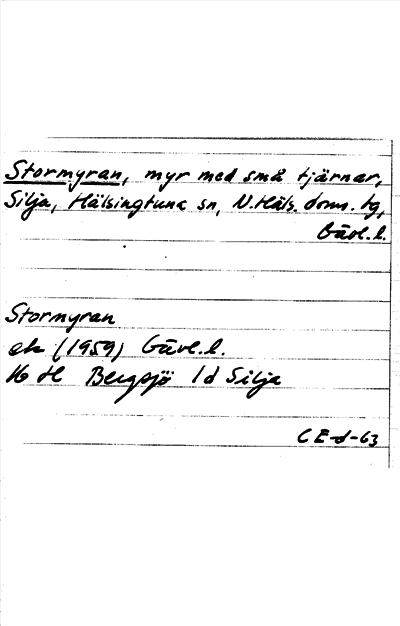 Stormyran, myr med små tjärnar,
Silja, Hälsingtuna sn, N. Häls. doms. tg,
Gävl. l.
Stormyran
ek (1959) Gävl. l.
16 H Bergsjö 1 d Silja
CE-d-63